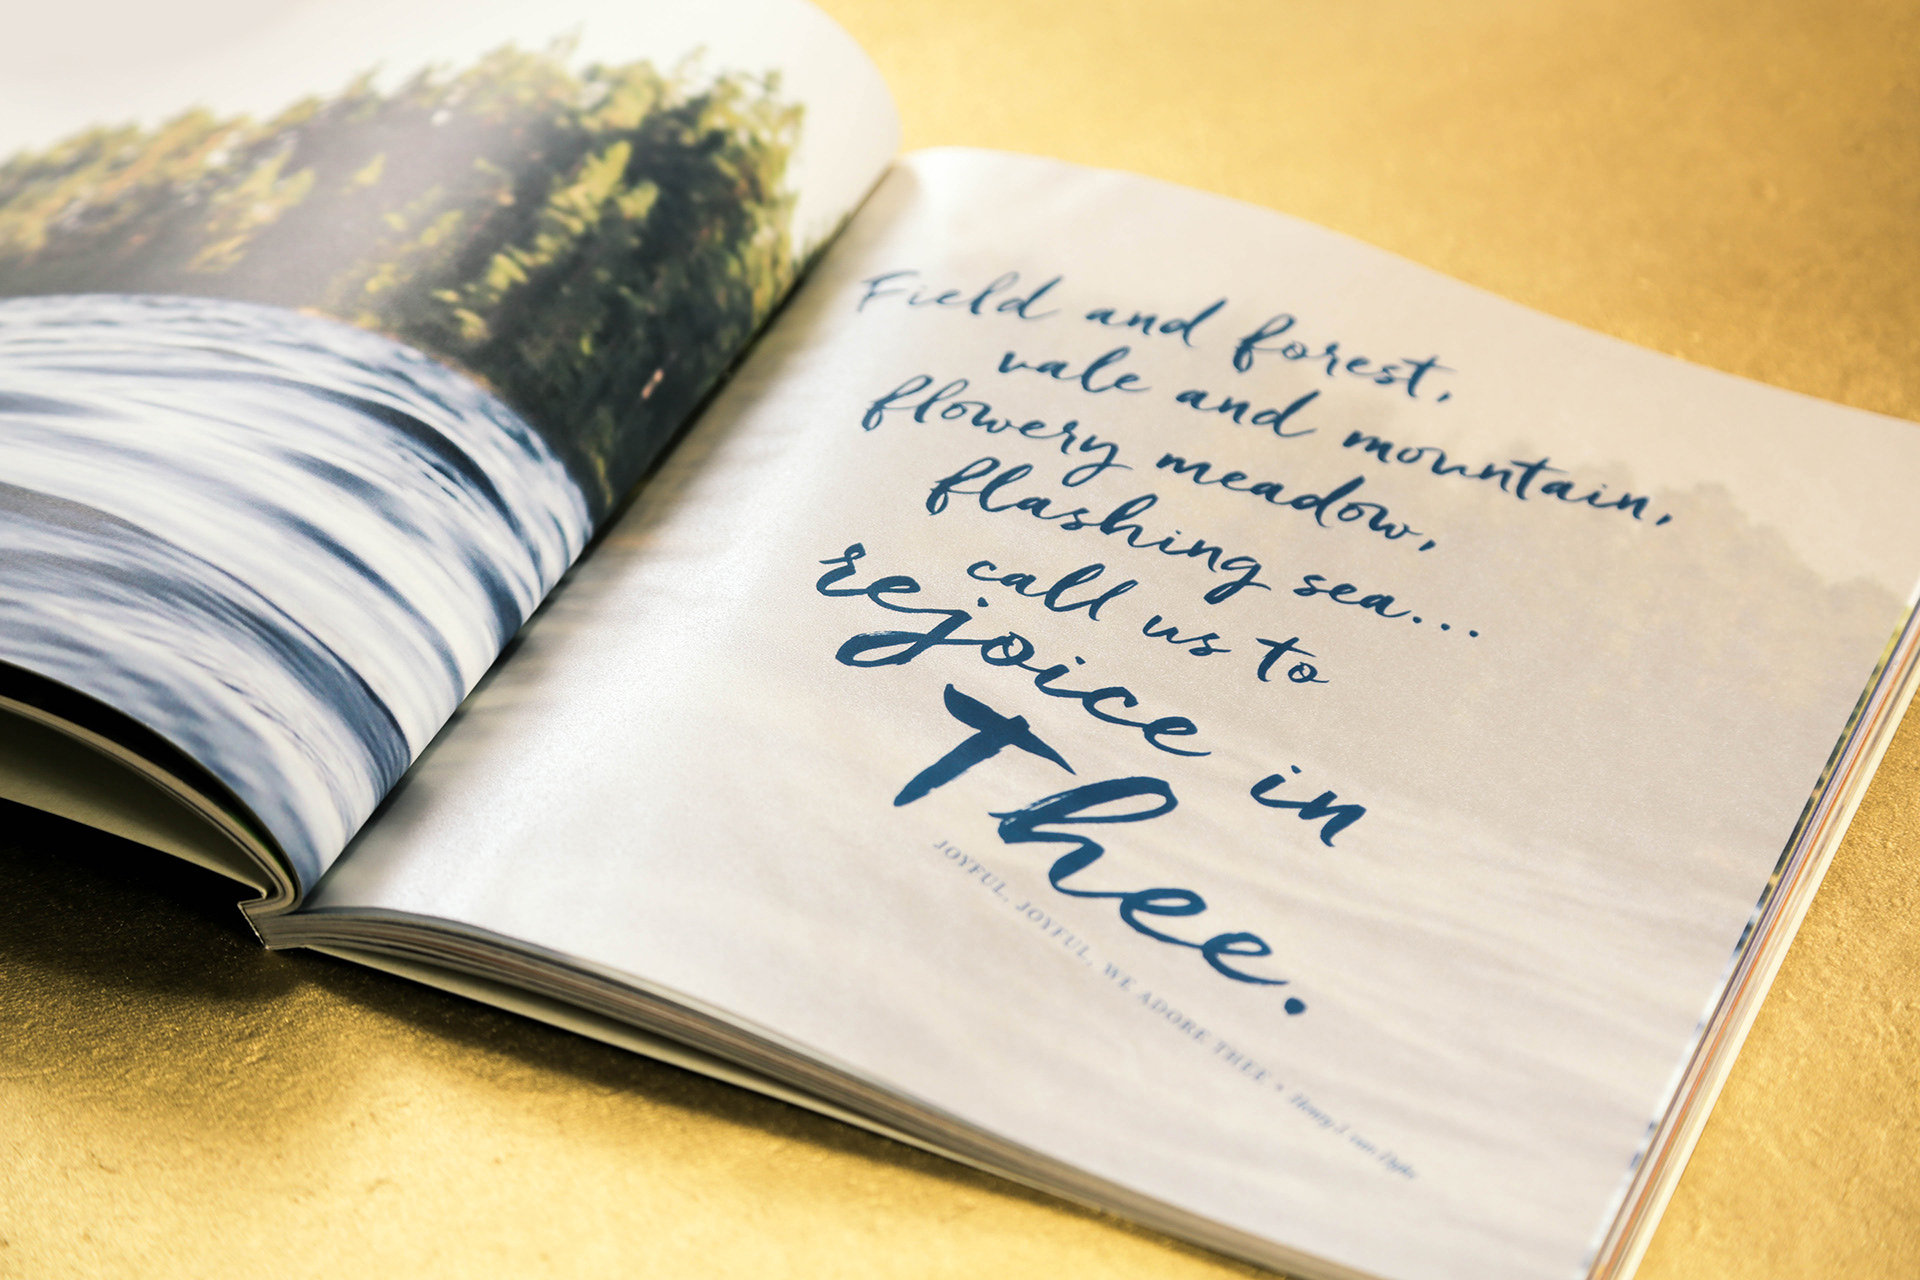 Field and forest,
vale and mountain,
flowery meadow,
flashing sea...
call us to
rejoice in
Thee.
JOYFUL, JOYFUL, WE ADORE THEE • Henry J. van Dyke